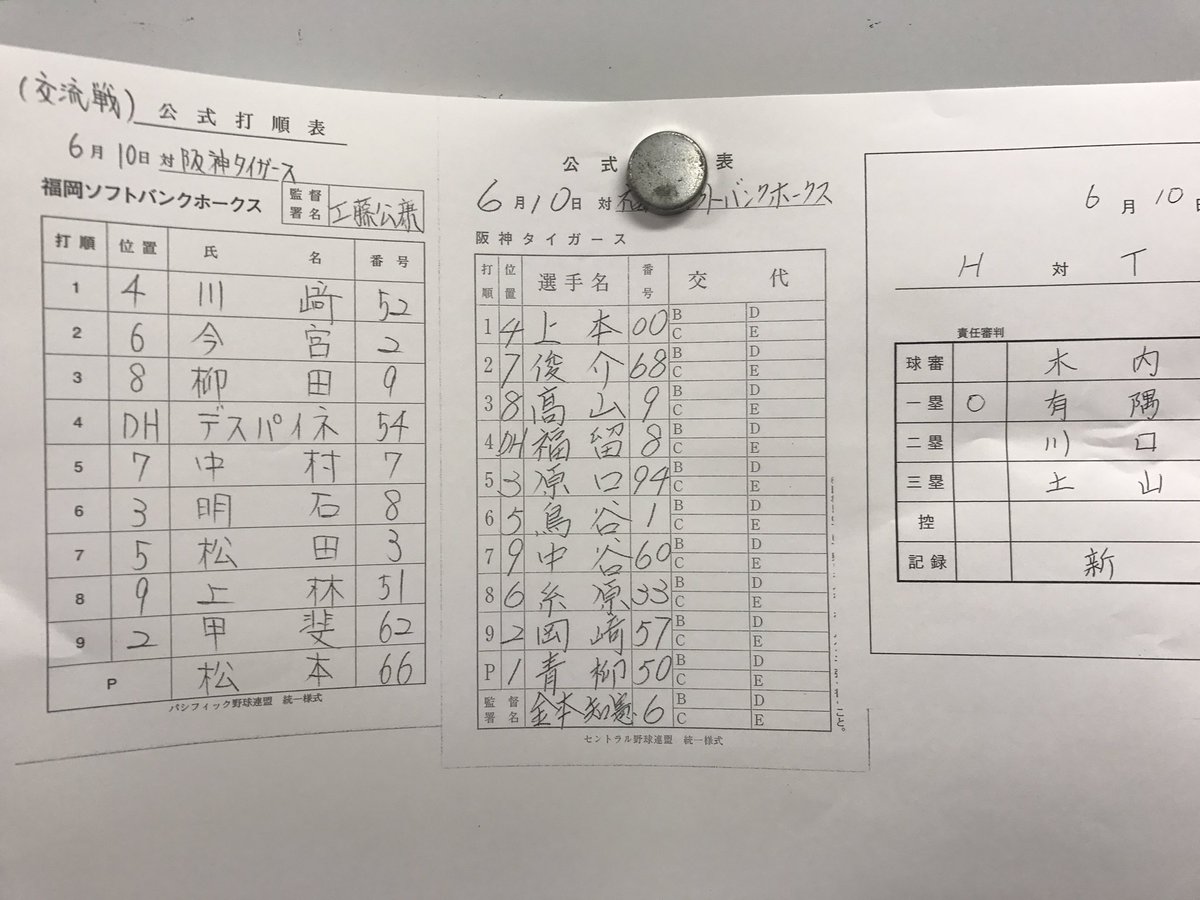 (交流戦) 公式打順表
6月10日 対 阪神タイガース
福岡ソフトバンクホークス 監督署名 工藤公康
打順 位置 氏名 番号
1 4 川﨑 52
2 6 今宮 2
3 8 柳田 9
4 DH デスパイネ 54
5 7 中村 7
6 3 明石 8
7 5 松田 3
8 9 上林 51
9 2 甲斐 62
P 松本 66
パシフィック野球連盟 統一様式
公式 表
6月10日 対 ソフトバンクホークス
阪神タイガース
打順 位置 選手名 番号 交代
1 4 上本 00 B D
C E
2 7 俊介 68 B D
C E
3 8 髙山 9 B D
C E
4 DH 福留 8 B D
C E
5 3 原口 94 B D
C E
6 5 鳥谷 1 B D
C E
7 9 中谷 60 B D
C E
8 6 糸原 33 B D
C E
9 2 岡﨑 57 B D
C E
P 1 青柳 50 B D
C E
監督署名 金本知憲 6 B D
C E
セントラル野球連盟 統一様式
こと。
6月10日
H 対 T
責任審判
球審 木内
一塁 ○ 有隅
二塁 川口
三塁 土山
控
記録 新